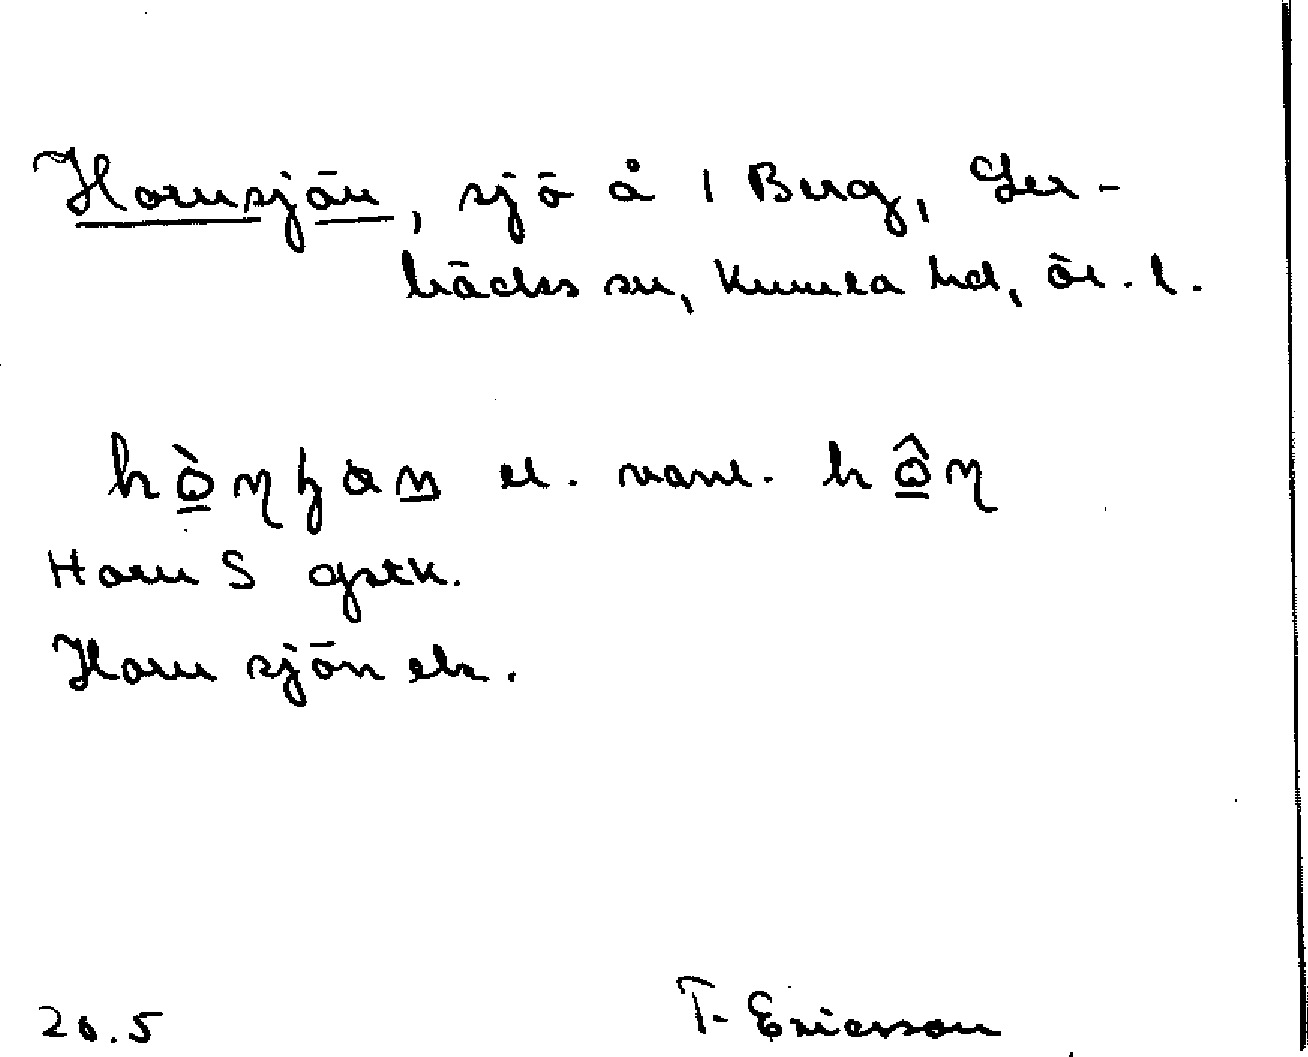 Hornsjön, sjö å 1 Berg, Ler-
bäcks sn, Kumla hd, Ör. l.
hò̱ɳʂan̲ el. vanl. hô̱ɳ
Horn S gstk.
Horn sjön ek.
20.5 T. Ericsson